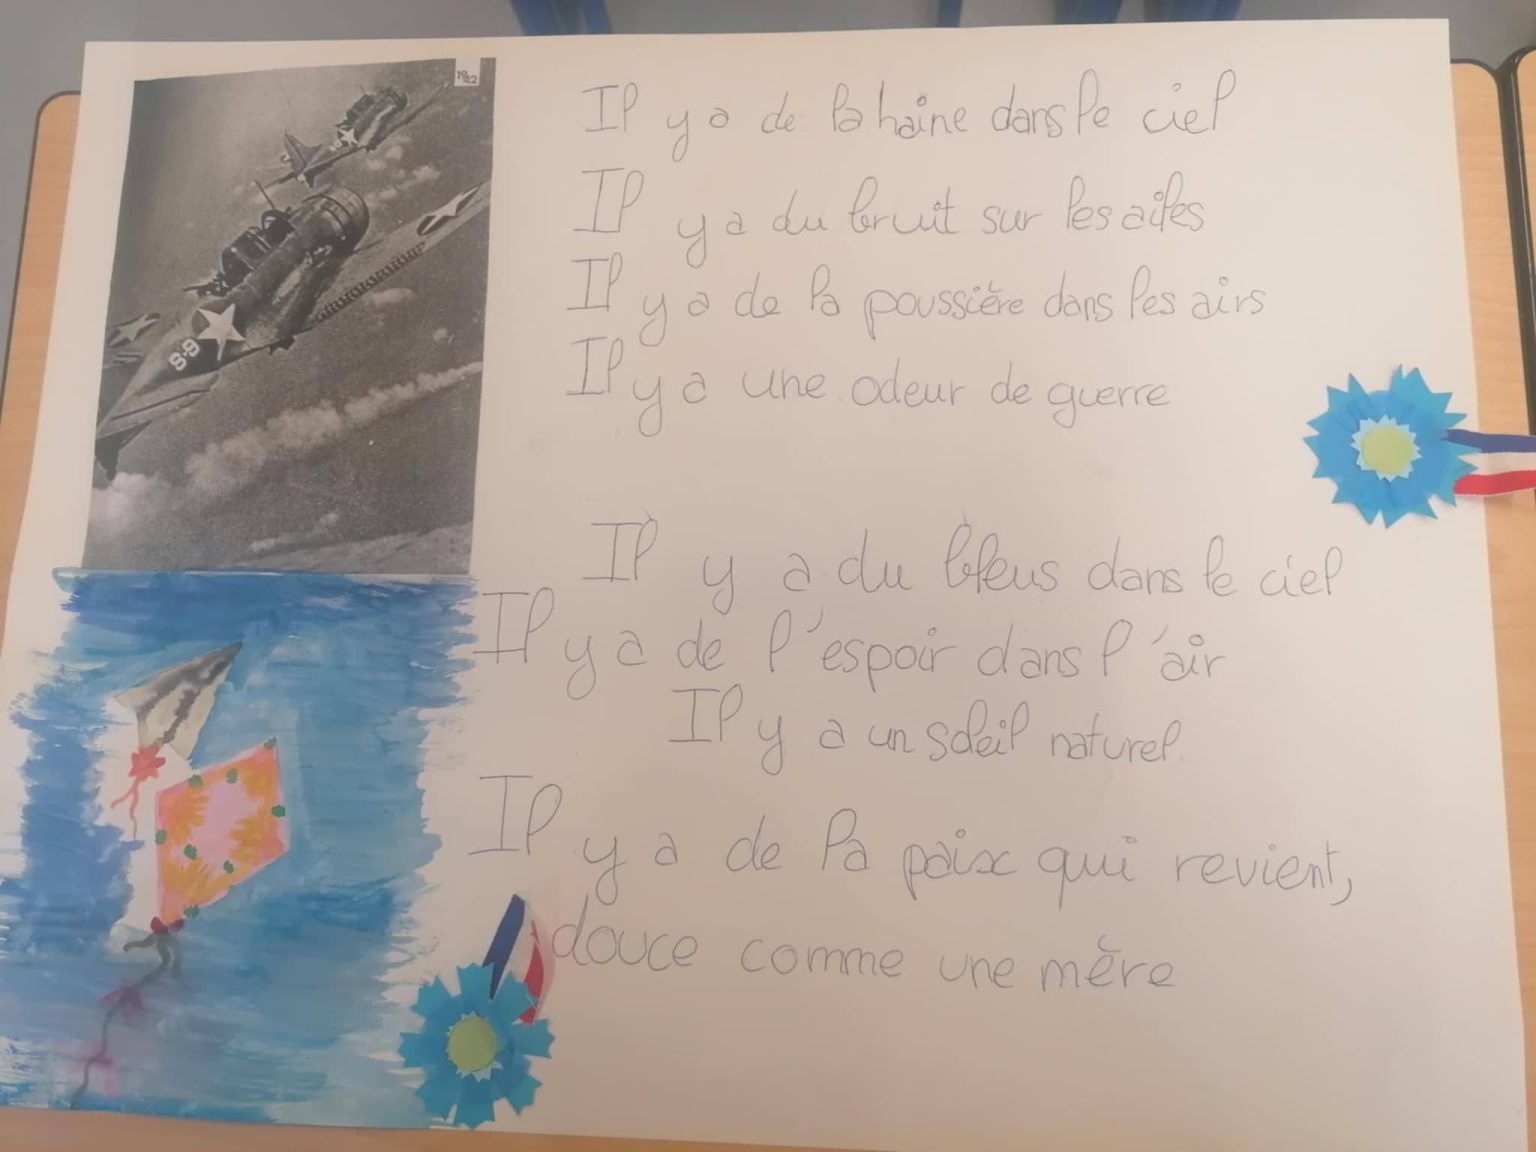 1942
S-9
Il y a de la haine dans le ciel
Il y a du bruit sur les ailes
Il y a de la poussière dans les airs
Il y a une odeur de guerre
Il y a du bleus dans le ciel
Il y a de l'espoir dans l'air
Il y a un soleil naturel.
Il y a de la paix qui revient,
douce comme une mère